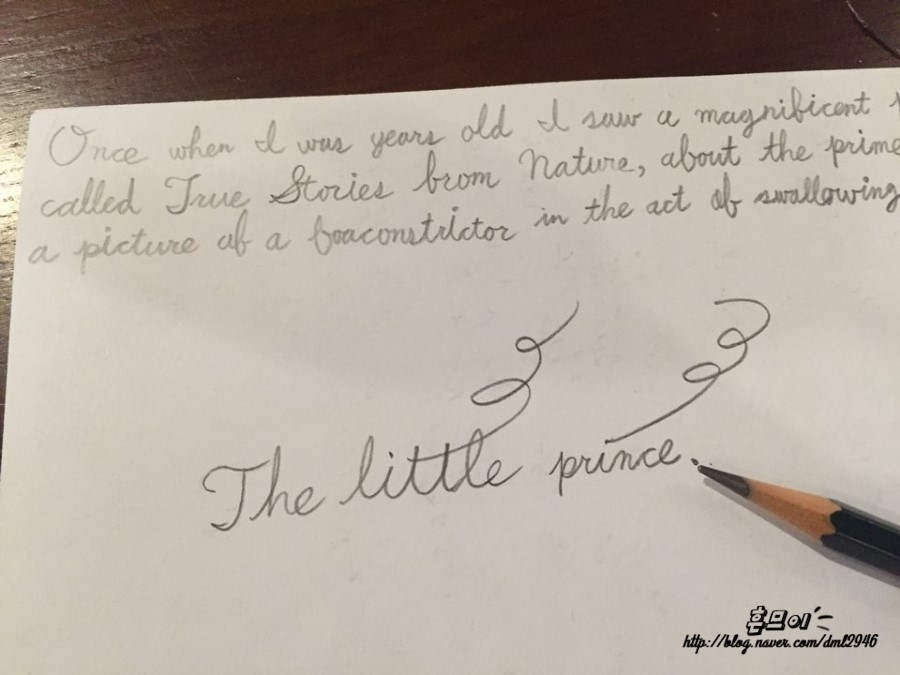 Once when I was years old I saw a magnificent
called True Stories from Nature, about the prime
a picture of a boaconstrictor in the act of swallowing
The little prince.
흔므이
http://blog.naver.com/dml2946